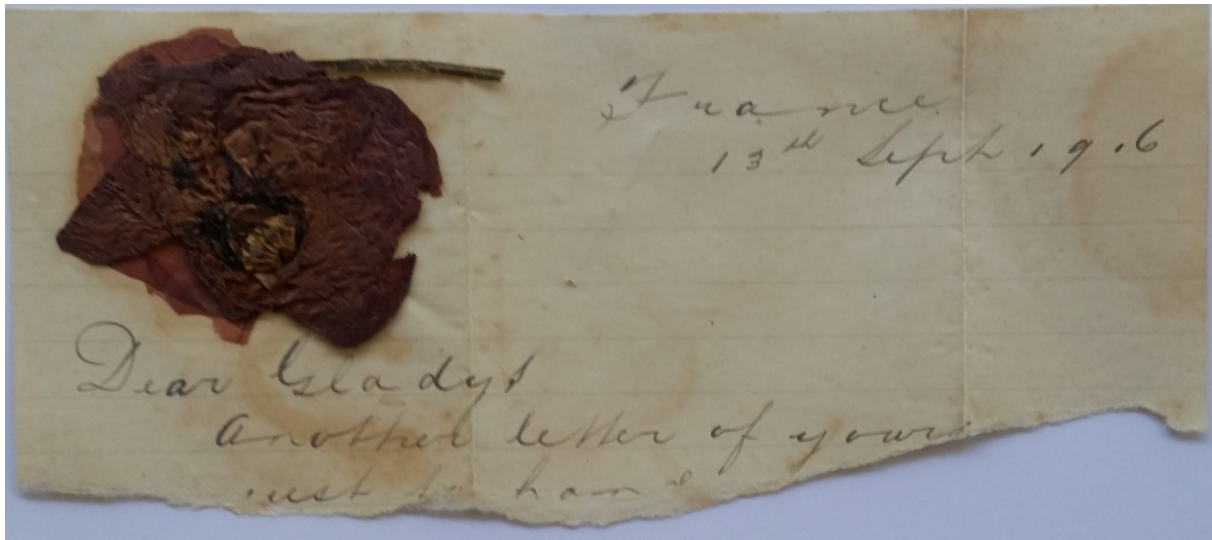 France
13th Sept 1916
Dear Gladys
Another letter of yours
just to hand